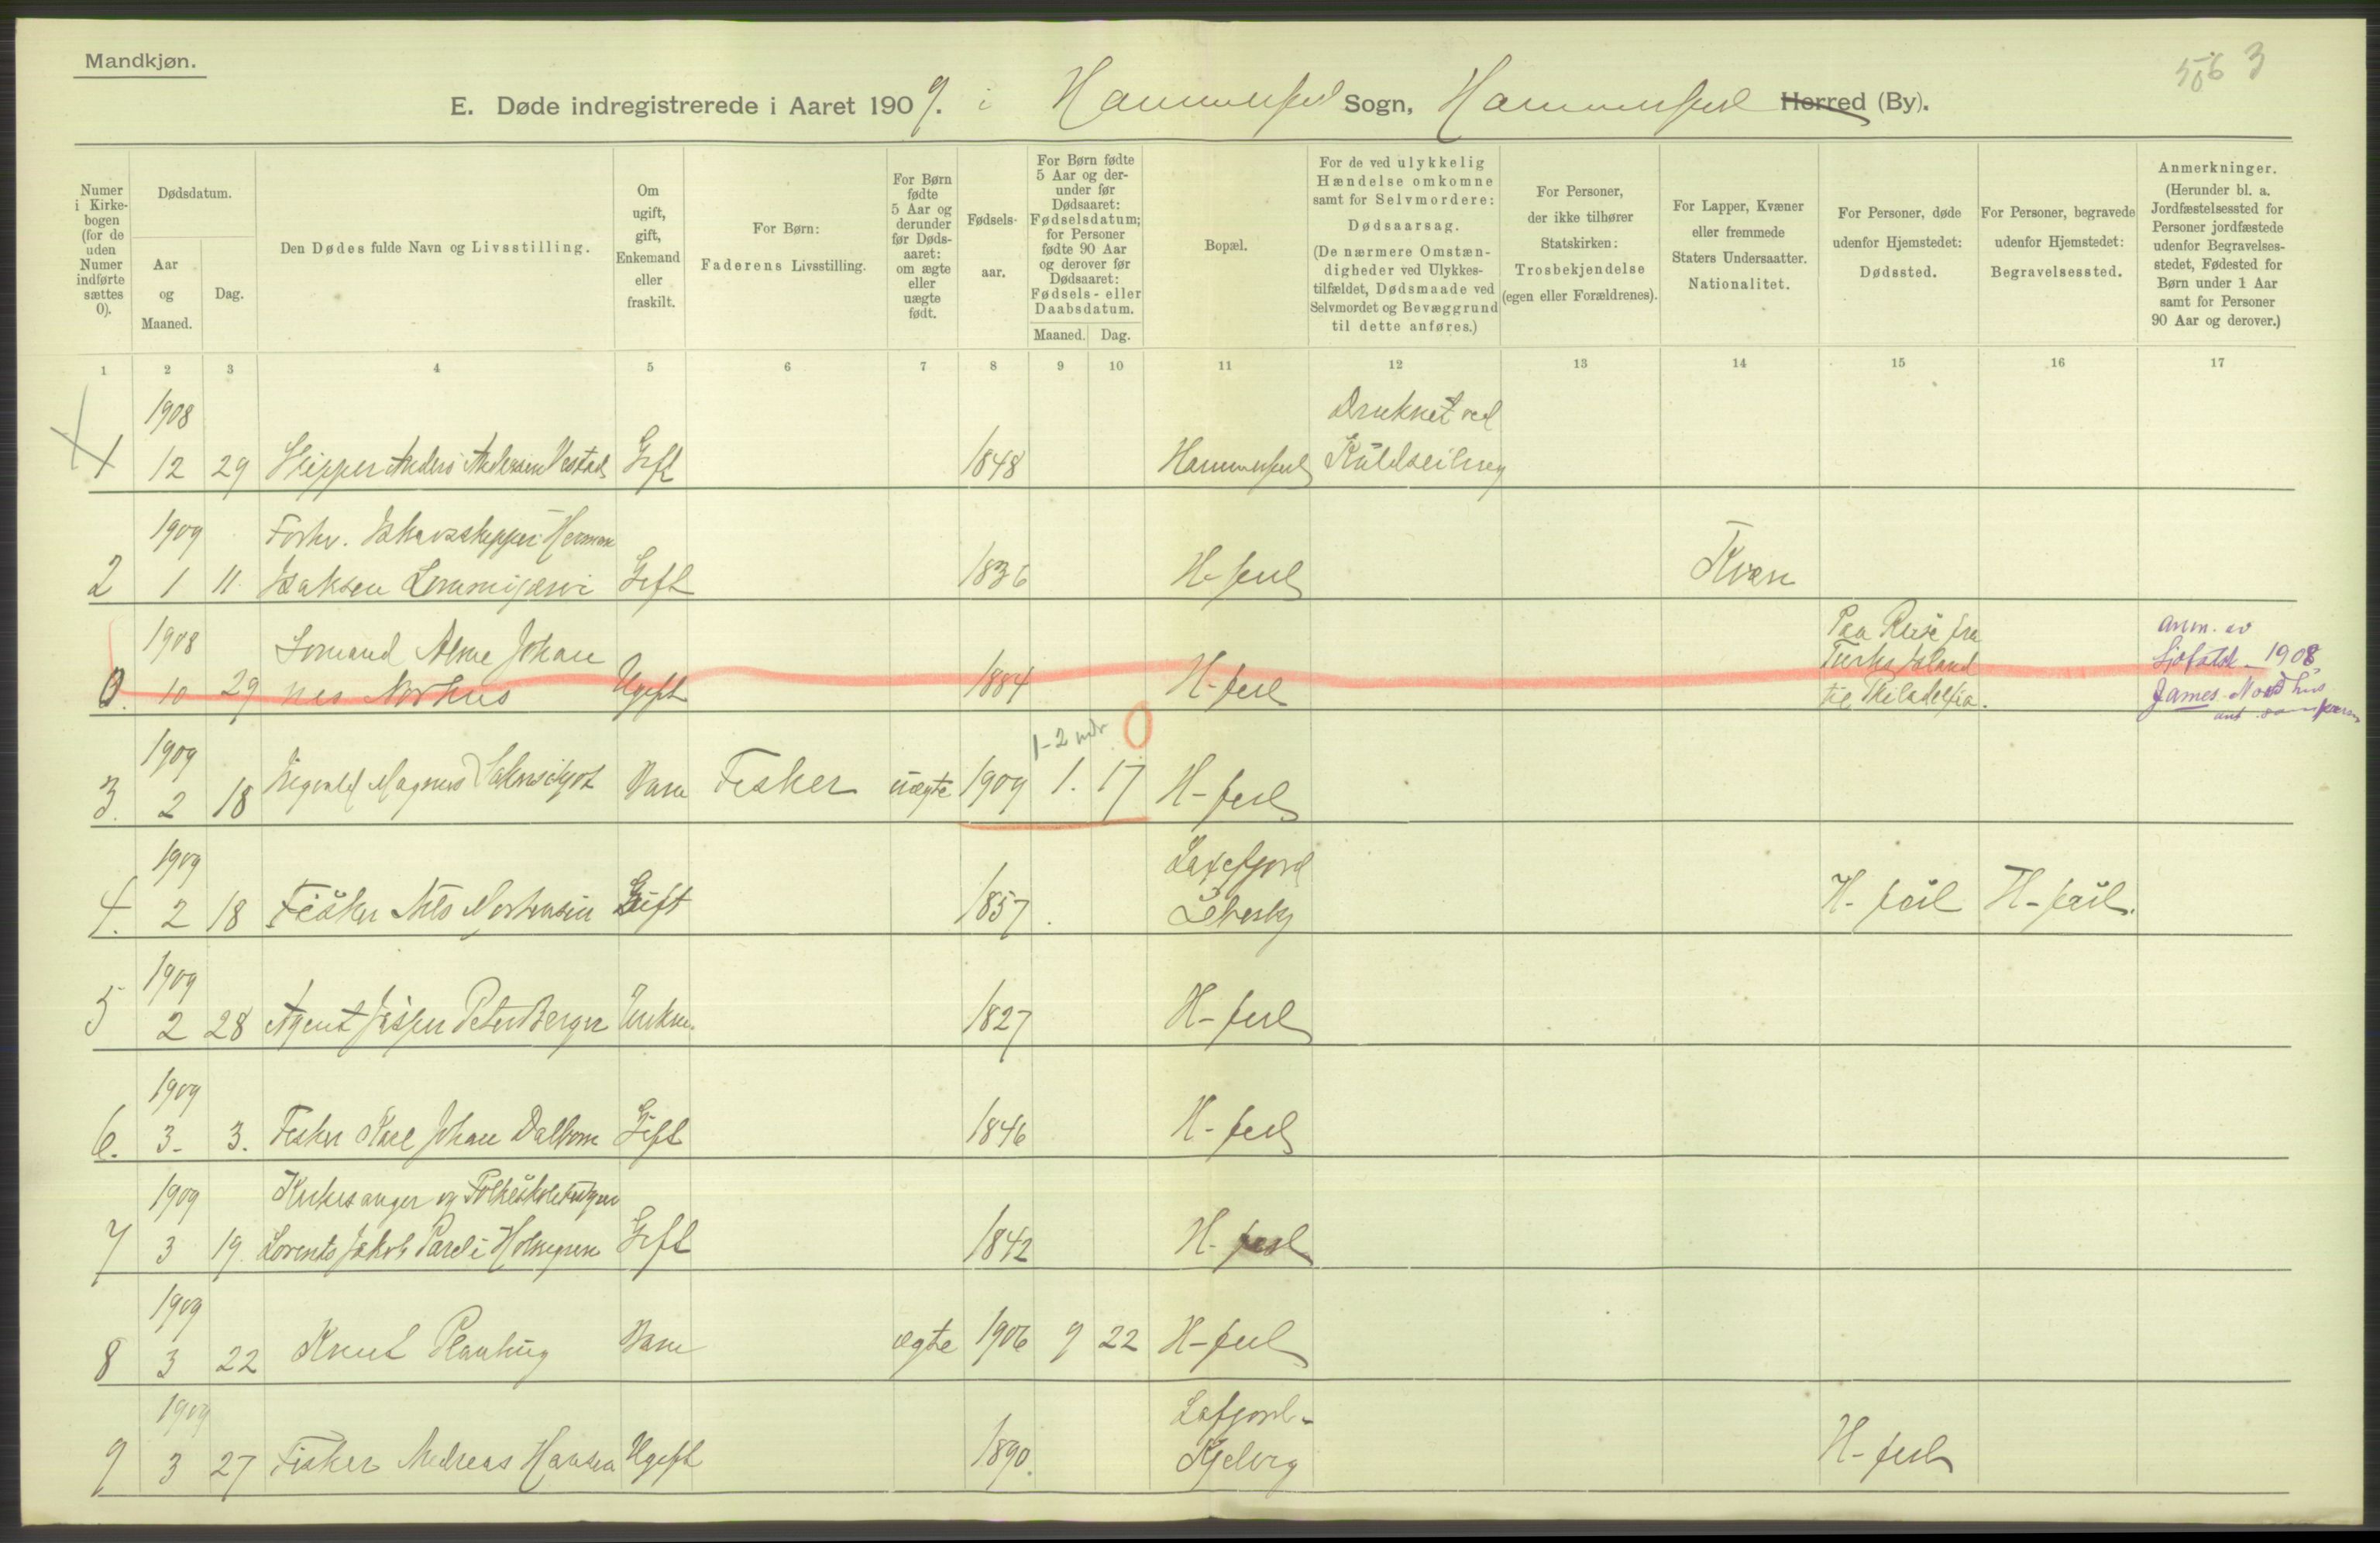 Mandkjøn.
556 3
E. Døde indregistrerede i Aaret 1909. i Hammerfest Sogn, Hammerfest Herred (By).
Numer i Kirke-bogen (for de uden Numer indførte sættes 0).
Dødsdatum.
Aar og Maaned.
Dag.
Den Dødes fulde Navn og Livsstilling.
Om ugift, gift, Enkemand eller fraskilt.
For Børn:
Faderens Livsstilling.
For Børn fødte 5 Aar og derunder før Døds-aaret: om ægte eller uægte født.
Fødsels-aar.
For Børn fødte 5 Aar og der-under før Dødsaaret: Fødselsdatum; for Personer fødte 90 Aar og derover før Dødsaaret: Fødsels- eller Daabsdatum.
Maaned. Dag.
Bopæl.
For de ved ulykkelig Hændelse omkomne samt for Selvmordere:
Dødsaarsag.
(De nærmere Omstæn-digheder ved Ulykkes-tilfældet, Dødsmaade ved Selvmordet og Bevæggrund til dette anføres.)
For Personer, der ikke tilhører Statskirken:
Trosbekjendelse
(egen eller Forældrenes).
For Lapper, Kvæner eller fremmede Staters Undersaatter.
Nationalitet.
For Personer, døde udenfor Hjemstedet:
Dødssted.
For Personer, begravede udenfor Hjemstedet:
Begravelsessted.
Anmerkninger.
(Herunder bl. a. Jordfæstelsessted for Personer jordfæstede udenfor Begravelses-stedet, Fødested for Børn under 1 Aar samt for Personer 90 Aar og derover.)
1 2 3 4 5 6 7 8 9 10 11 12 13 14 15 16 17
1908 Druknet ved
1 12 29 Skipper Anders Andersen Gift 1848 Hammerfest Kuldseiling
1909 Forhv. Ishavsskipper Herman
2 1 11. Isaksen Lommijærvi Gift 1836 H-fest Kvæn
1908 Sømand Alme Johan Paa Reise fra anm. av
Turks Island Sjøfatst. 1908,
0. 10 29 nes Norhus Ugift 1884 H-fest til Philadelfia. James Nordhus
1-2 mdr 0
1909
3. 2 18 Sigvald Magnus Barn Fisker uægte 1909 1. 17 H-fest
1909 Laxefjord
4. 2 18 Fisker Nils Mortensen Gift 1857 Lebesby H-fest H-fest.
1909
5 2 28 Agent Jesper Peter Berger Enkem. 1827 H-fest
1909
6. 3- 3. Fisker Karl Johan Dalbom Gift 1846 H-fest
1909 Kirkesanger og
7 3 19. Lorents Jakob Pareli Holmgren Gift 1842 H-fest
1909
8 3 22 Knut Planting Barn ægte 1906 9 22 H-fest
1909 Lafjord-
9 3 27 Fisker Andreas Hansen Ugift 1890. Kjelvig H-fest